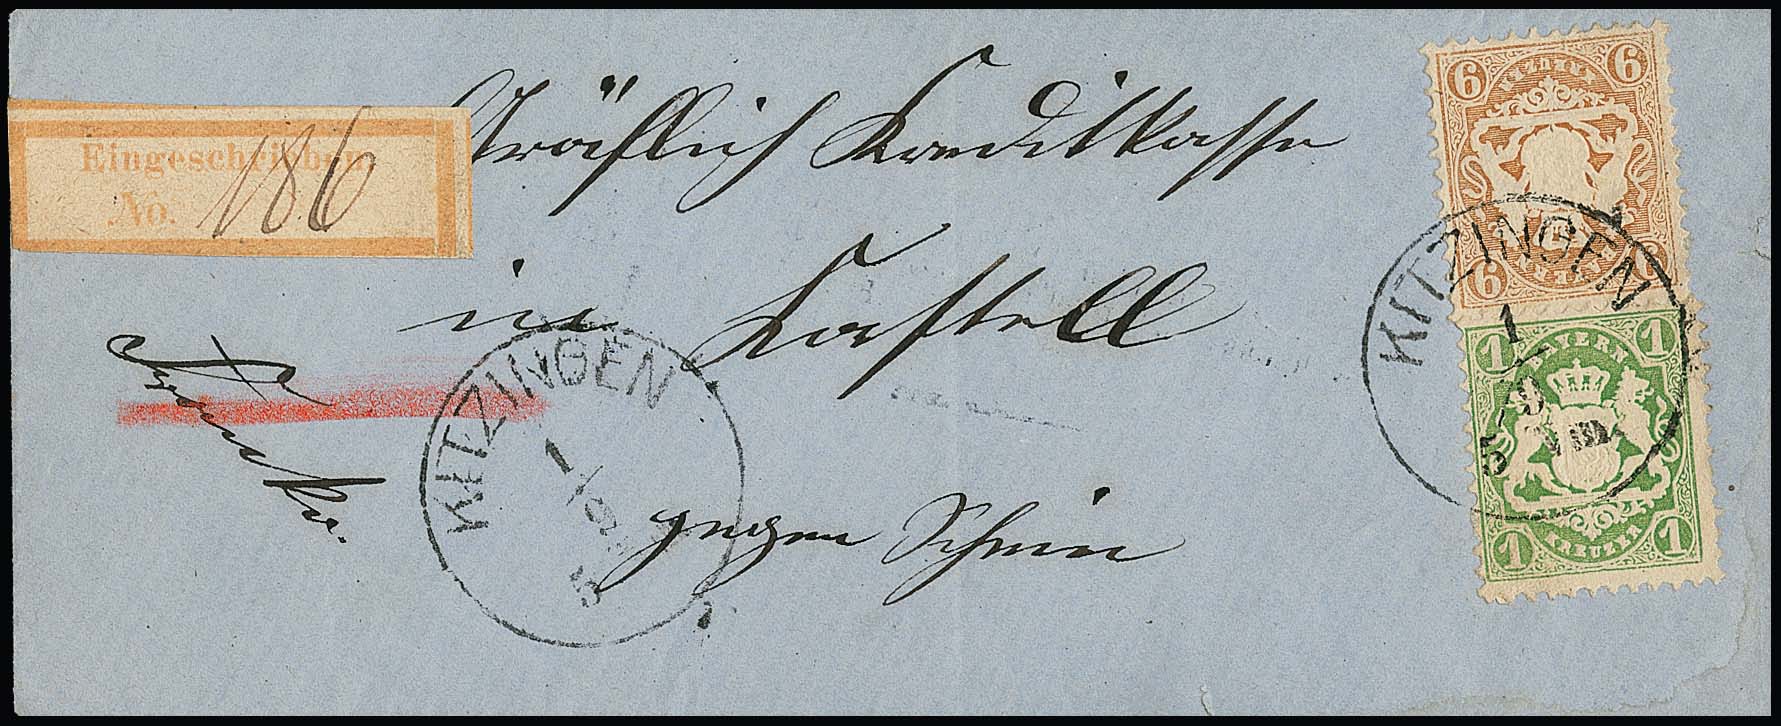 Eingeschrieben
No. 186
Gräflich Kreditkasse
in Castell
gegen Schein
Franko.
KITZINGEN
1/9
5
KITZINGEN
1/9
5 Vm
6 6
KREUZER
6
BAYERN
1 1
BAYERN
1 1
KREUZER